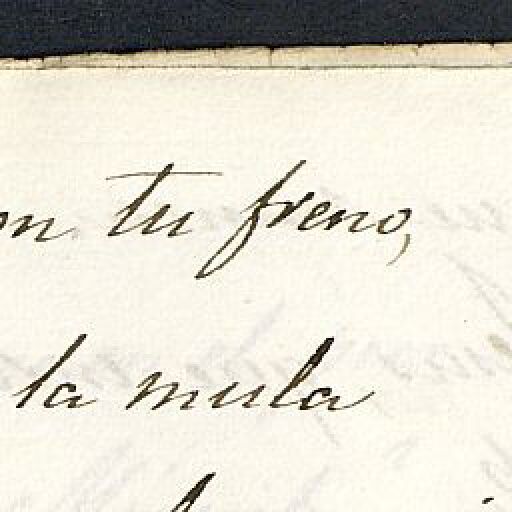 on tu freno,
la mula